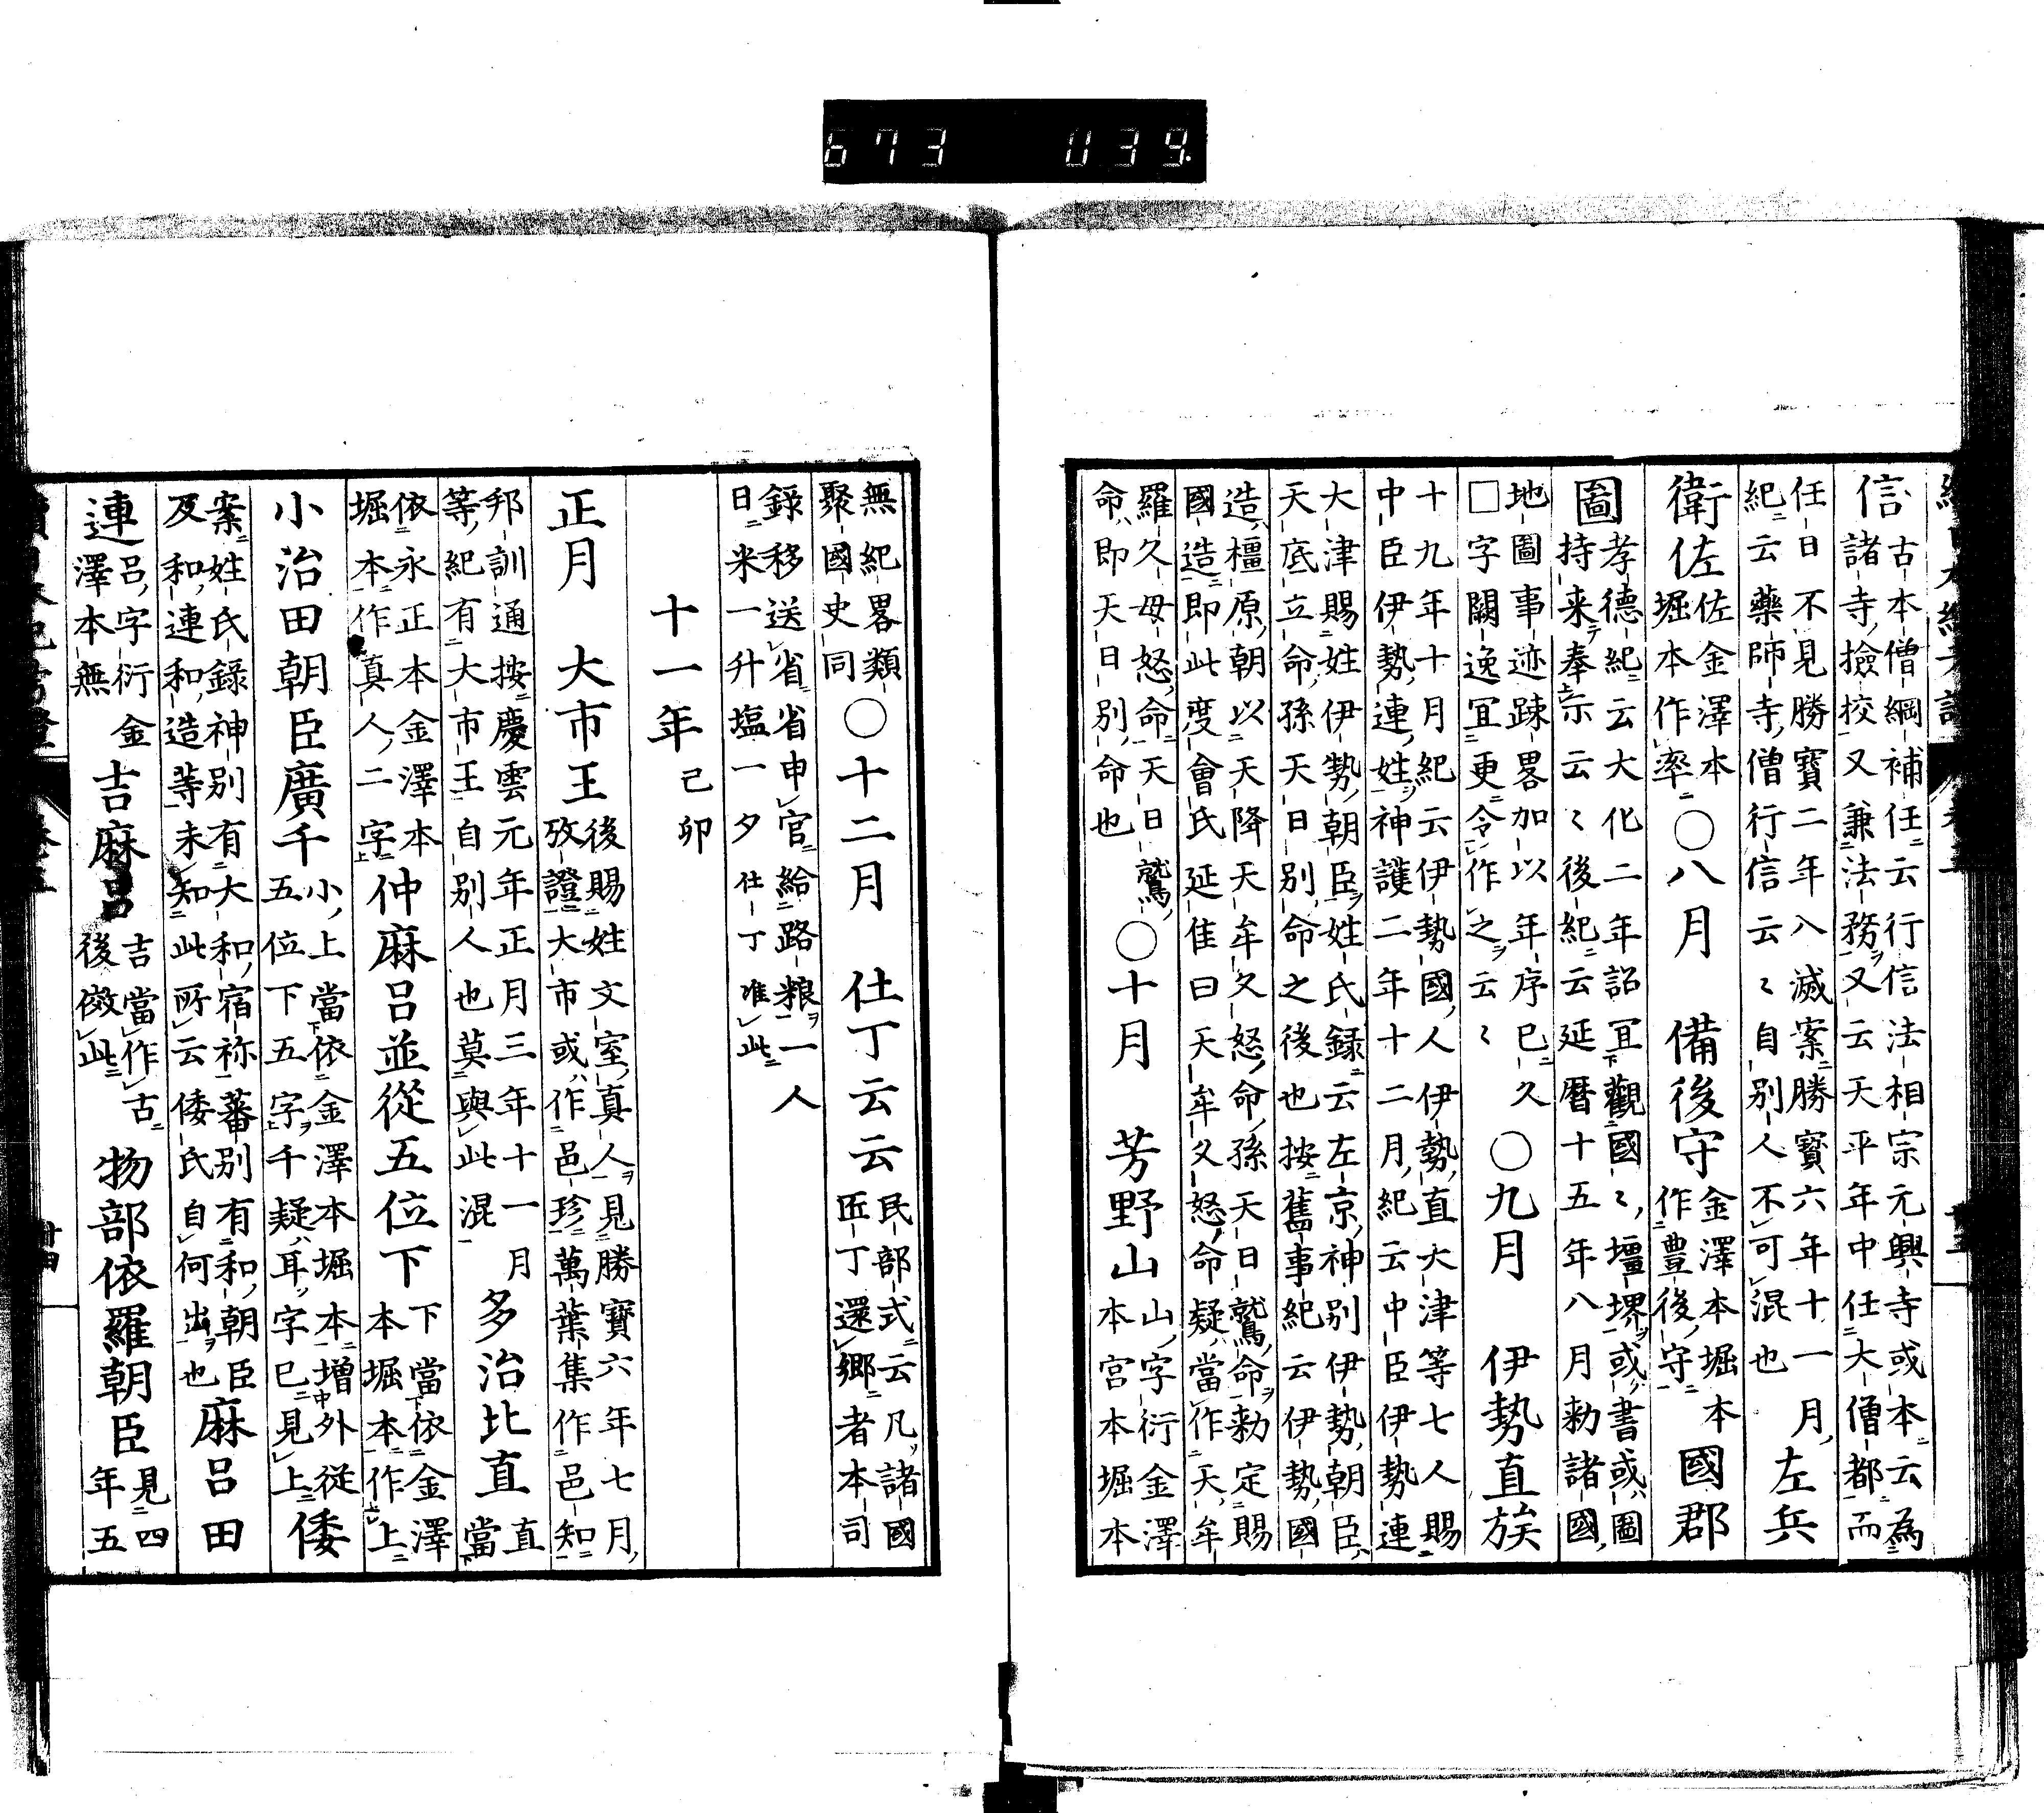 673 039
信古本僧綱補任云行信法相宗元興寺或本云為
諸寺撿挍又兼法務又云天平年中任大僧都而
任日不見勝寶二年八滅案勝寶六年十一月
紀云藥師寺僧行信云々自別人不可混也左兵
衛佐佐金澤本堀本作率〇八月 備後守金澤本堀本作豊後守國郡
圖孝德紀云大化二年詔冝觀國々壃堺或書或圖
持来奉示云々後紀云延暦十五年八月勅諸國
地圖事迹踈畧加以年序已久
□字闕逸冝更令作之云々〇九月 伊勢直族
十九年十月紀云伊勢國人伊勢直大津等七人賜
中臣伊勢連姓神護二年十二月紀云中臣伊勢連
大津賜姓伊勢朝臣姓氏録云左京神別伊勢朝臣
天底立命孫天日別命之後也按舊事紀云伊勢國
造橿原朝以天降天牟久怒命孫天日鷲命勅定賜
國造即此度會氏延隹曰天牟久怒命疑當作天牟
羅久母怒命天日鷲
命即天日別命也〇十月 芳野山山字衍金澤本宮本堀本
無紀畧類
聚國史同〇十二月 仕丁云云民部式云凡諸國匠丁還郷者本司
録移送省省申官給路粮一人
日米一升塩一夕仕丁准此
十一年己卯
正月 大市王後賜姓文室真人見勝寶六年七月
攷證大市或作邑珍萬葉集作邑知
邦訓通按慶雲元年正月三年十一月
等紀有大市王自別人也莫與此混多治比直直當
依永正本金澤本
堀本作真人二字仲麻呂並從五位下下當依金澤本堀本作上
小治田朝臣廣千小上當依金澤本堀本増外從
五位下五字千疑耳字已見上倭
案姓氏錄神別有大和宿祢蕃別有和朝臣
及和連和造等未知此所云倭氏自何出也麻呂田
連呂字衍金
澤本無吉麻呂吉當作古
後傚此物部依羅朝臣見四年五